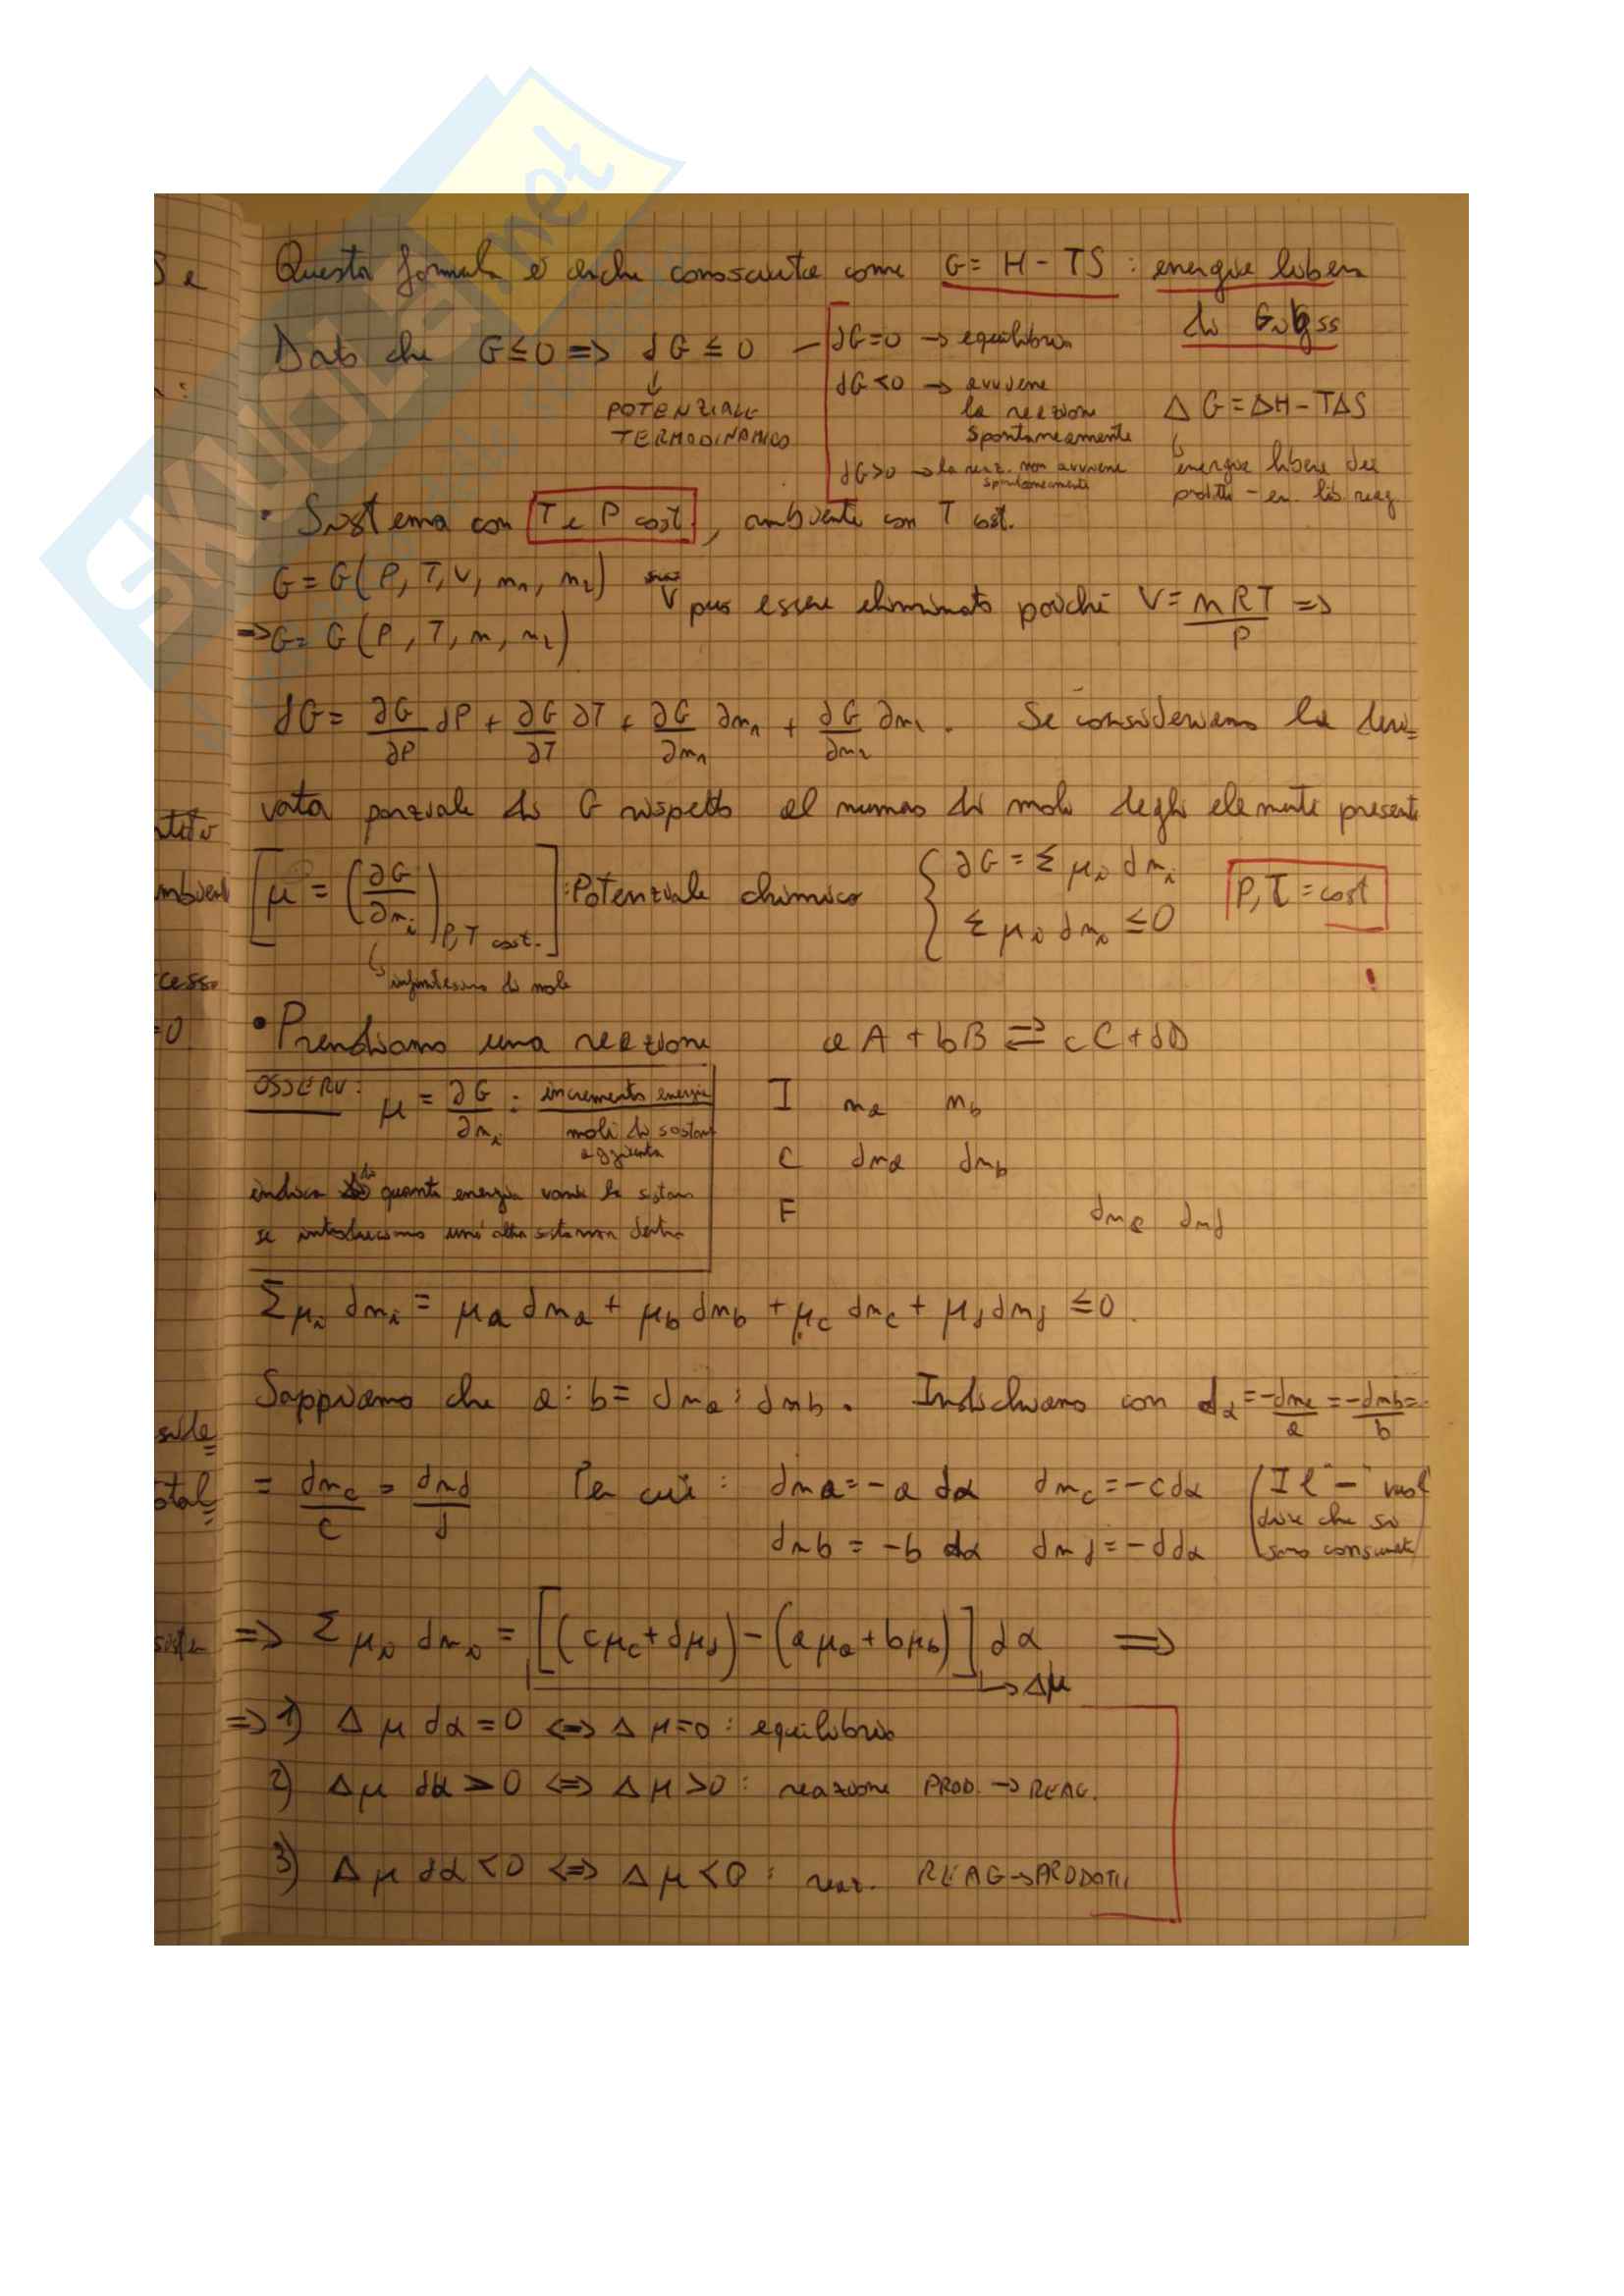 SKUOLA.net
Questa formula è anche conosciuta come G = H - TS : energia libera
di Gibbss
Dato che G ≤ 0 => dG ≤ 0 — dG=0 -> equilibrio
↓
POTENZIALE
TERMODINAMICO
dG<0 -> avviene
la reazione
spontaneamente
dG>0 -> la reaz. non avviene
spontaneamente
Δ G = ΔH - TΔS
energia libera dei
prodotti - en. lib reag.
• Sistema con T e P cost, ambiente con T cost.
G = G(P, T, V, n₁, n₂) V può essere eliminato poiché V = nRT/P =>
=> G = G(P, T, n, n₂)
dG = ∂G/∂P dP + ∂G/∂T ∂T + ∂G/∂n₁ ∂n₁ + ∂G/∂n₂ ∂n₂ . Se consideriamo la deri=
vata parziale di G rispetto al numero di moli degli elementi presenti
[μ = (∂G/∂nᵢ) P,T cost.] : Potenziale chimico { ∂G = Σ μᵢ dnᵢ
Σ μᵢ dnᵢ ≤ 0
P, T = cost
!
infinitesimo di mole
• Prendiamo una reazione aA + bB ⇌ cC + dD
OSSERV: μ = ∂G/∂nᵢ = incremento energia / moli di sostan
aggiunta
indica di quanta energia varia il sistema
se introduciamo un'altra sostanza dentro
I na nb
C dna dnb
F dnc dnd
Σ μᵢ dnᵢ = μa dna + μb dnb + μc dnc + μd dnd ≤ 0.
Sappiamo che a : b = dna : dnb. Indichiamo con dα = -dna/a = -dnb/b =
= dnc/c = dnd/d Per cui : dna = -a dα dnc = -c dα (Il "-" vuol
dire che si
sono consumati)
dnb = -b dα dnd = -d dα
=> Σ μᵢ dnᵢ = [(cμc + dμd) - (aμa + bμb)] dα =>
-> Δμ
=> 1) Δ μ dα = 0 <=> Δ μ = 0 : equilibrio
2) Δμ dα > 0 <=> Δ μ > 0 : reazione PROD. -> REAG.
3) Δ μ dα < 0 <=> Δ μ < 0 : reaz. REAG -> PRODOTTI